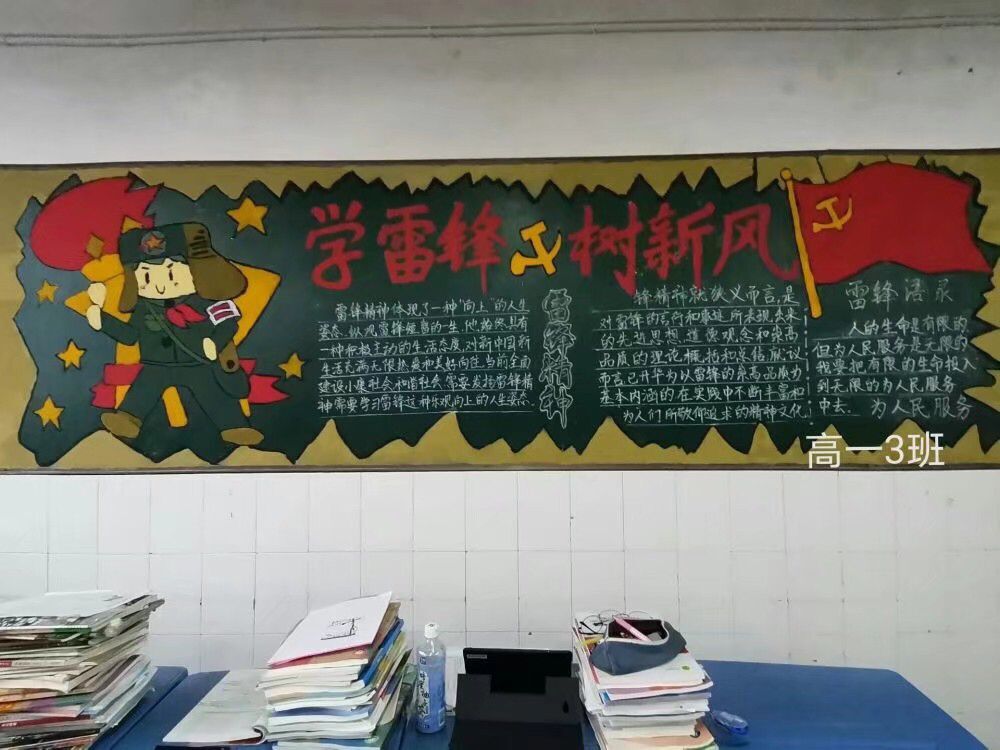 学雷锋 树新风
雷锋精神体现了一种"向上"的人生
姿态,纵观雷锋短暂的一生,他始终具有
一种积极主动的生活态度,对新中国新
生活充满无限热爱和美好向往.当前全面
建设小康社会和谐社会,需要发扬雷锋精
神需要学习雷锋这种乐观向上的人生姿态.
雷锋精神
锋精神就狭义而言,是
对雷锋的言行和事迹所表现出来
的先进思想,道德观念和崇高
品质的理论概括和总结.就议
而言已升华为以雷锋的崇高品质为
基本内涵的在实践中不断丰富和
为人们所敬仰追求的精神文化
雷锋语录
人的生命是有限的
但为人民服务是无限的
我要把有限的生命投入
到无限的为人民服务
中去. 为人民服务
高一3班